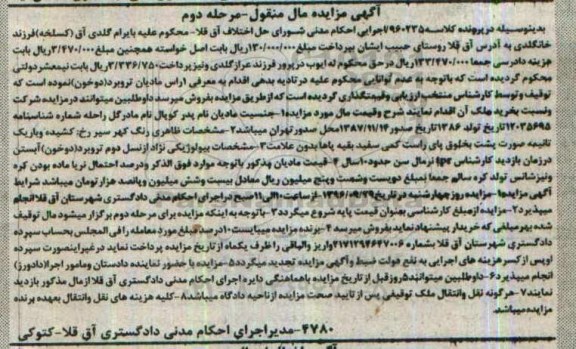 آگهی مزایده مال منقول-مرحله دوم
بدینوسیله در پرونده کلاسه ۹۶۰۲۳۵/اجرایی احکام مدنی شورای حل اختلاف آق قلا- محکوم علیه بایرام گلدی آق (کسلخه)فرزند
خانگلدی به آدرس آق قلا روستای حبیب ایشان بپرداخت مبلغ ۱۳۰/۰۰۰/۰۰۰ریال بابت اصل خواسته همچنین مبلغ ۳/۴۷۰/۰۰۰ریال بابت
هزینه دادرسی جمعا ۱۳۳/۴۷۰/۰۰۰ریال در حق محکوم له ایوب درپور فرزند عرازگلدی ونیز پرداخت ۳/۳۳۶/۷۵۰ریال بابت نیمعشر دولتی
محکوم گردیده است که باتوجه به عدم توانایی محکوم علیه در تادیه بدهی اقدام به معرفی ۱راس مادیان تروبرد(دوخون)نموده است که
توقیف وتوسط کارشناس منتخب ارزیابی وقیمتگذاری گردیده است که از طریق مزایده بفروش میرسد داوطلبین میتوانند در مزایده شرکت
ونسبت بخرید ملک آن اقدام نمایند شرح وقیمت مال مورد مزایده۱-جنسیت مادیان نام پدر کوپال نام مادر گل راحله شماره شناسنامه
۱۲۰۳۵۶۹۵ تاریخ تولد ۱۳۸۶ تاریخ صدور ۱۳۸۷/۱۱/۱۴محل صدور تهران میباشد۲-مشخصات ظاهری رنگ کهر سیر رخ: کشیده وباریک
ثانیه صورت پشت بخلوق پای راست کمی سفید بقیه پاها بدون علامت۳-مشخصات بیولوژیکی نژاد از نسل دوم تروبرد(دوخون)آبستن
در زمان بازدید کارشناس tpr نرمال سن حدود۱۰سال ۴-قیمت مادیان مذکور باتوجه موارد فوق الذکر ودرصد احتمال نریا ماده بودن کره
ونیز شانس تولد کره سالم جمعا بمبلغ دویست وشصت وپنج میلیون ریال معادل بیست وشش میلیون وپانصد هزار تومان میباشد شرایط
آگهی مزایده۱-مزایده روز چهارشنبه در تاریخ ۱۳۹۶/۰۹/۲۹از ساعت۱۰الی۱۱صبح در اجرای احکام مدنی دادگستری شهرستان آق قلا انجام
میپذیرد۲-مزایده از مبلغ کارشناسی بعنوان قیمت پایه شروع میگردد۳-باتوجه به اینکه مزایده برای مرحله دوم برگزار میشود مال توقیف
شده بهر مبلغی که خریدار پیشنهاد نماید بفروش میرسد ۴-برنده مزایده میبایست ۱۰درصد مبلغ مورد معامله رافی المجلس بحساب سپرده
دادگستری شهرستان آق قلا بشماره ۲۱۷۱۲۹۴۶۴۷۰۰۶واریز والباقی را ظرف یکماه از تاریخ مزایده پرداخت نماید در غیراینصورت سپرده
اوپس از کسر هزینه های اجرایی به نفع دولت ضبط وآگهی مزایده تجدید میگردد۵-مزایده با حضور نماینده دادستان ومامور اجرا(دادورز)
انجام میپذیرد۶-داوطلبین میتوانند۵روز قبل از تاریخ مزایده باهماهنگی دایره اجرای احکام مدنی دادگستری آق قلا از مال مذکور بازدید
نمایند۷-هرگونه نقل وانتقال ملک توقیفی پس از تایید صحت مزایده از ناحیه دادگاه میباشد۸-کلیه هزینه های نقل وانتقال بعهده برنده
مزایده میباشد.
۴۷۸۰-مدیر اجرای احکام مدنی دادگستری آق قلا-کتوکی